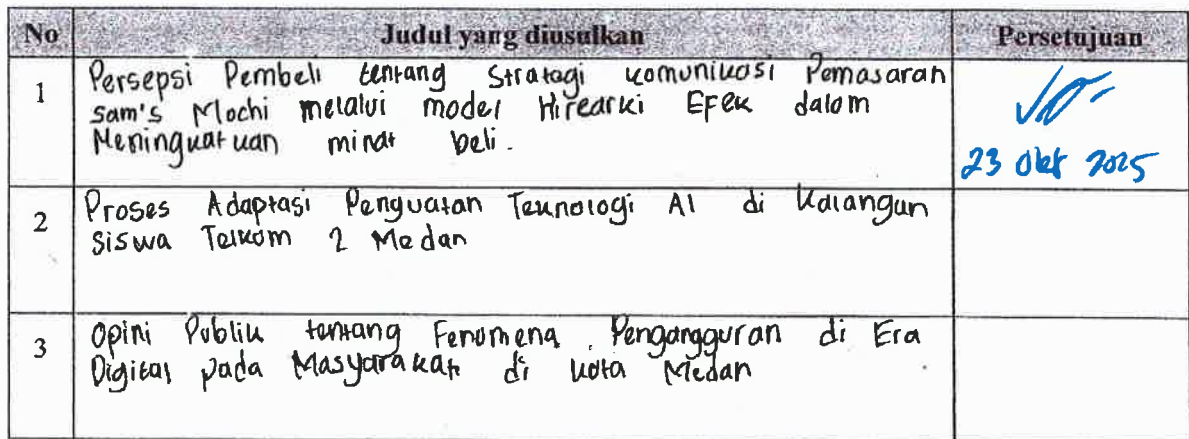 No Judul yang diusulkan Persetujuan
1 Persepsi Pembeli tentang Stratagi komunikasi Pemasaran
Sam's Mochi melalui model Hirearki Efek dalam
Meningkatkan minat beli.
23 Okt 2025
2 Proses Adaptasi Penguatan Teknologi AI di Kalangan
Siswa Telkom 2 Medan
3 Opini Publik tentang Fenomena Pengangguran di Era
Digital pada Masyarakat di kota Medan